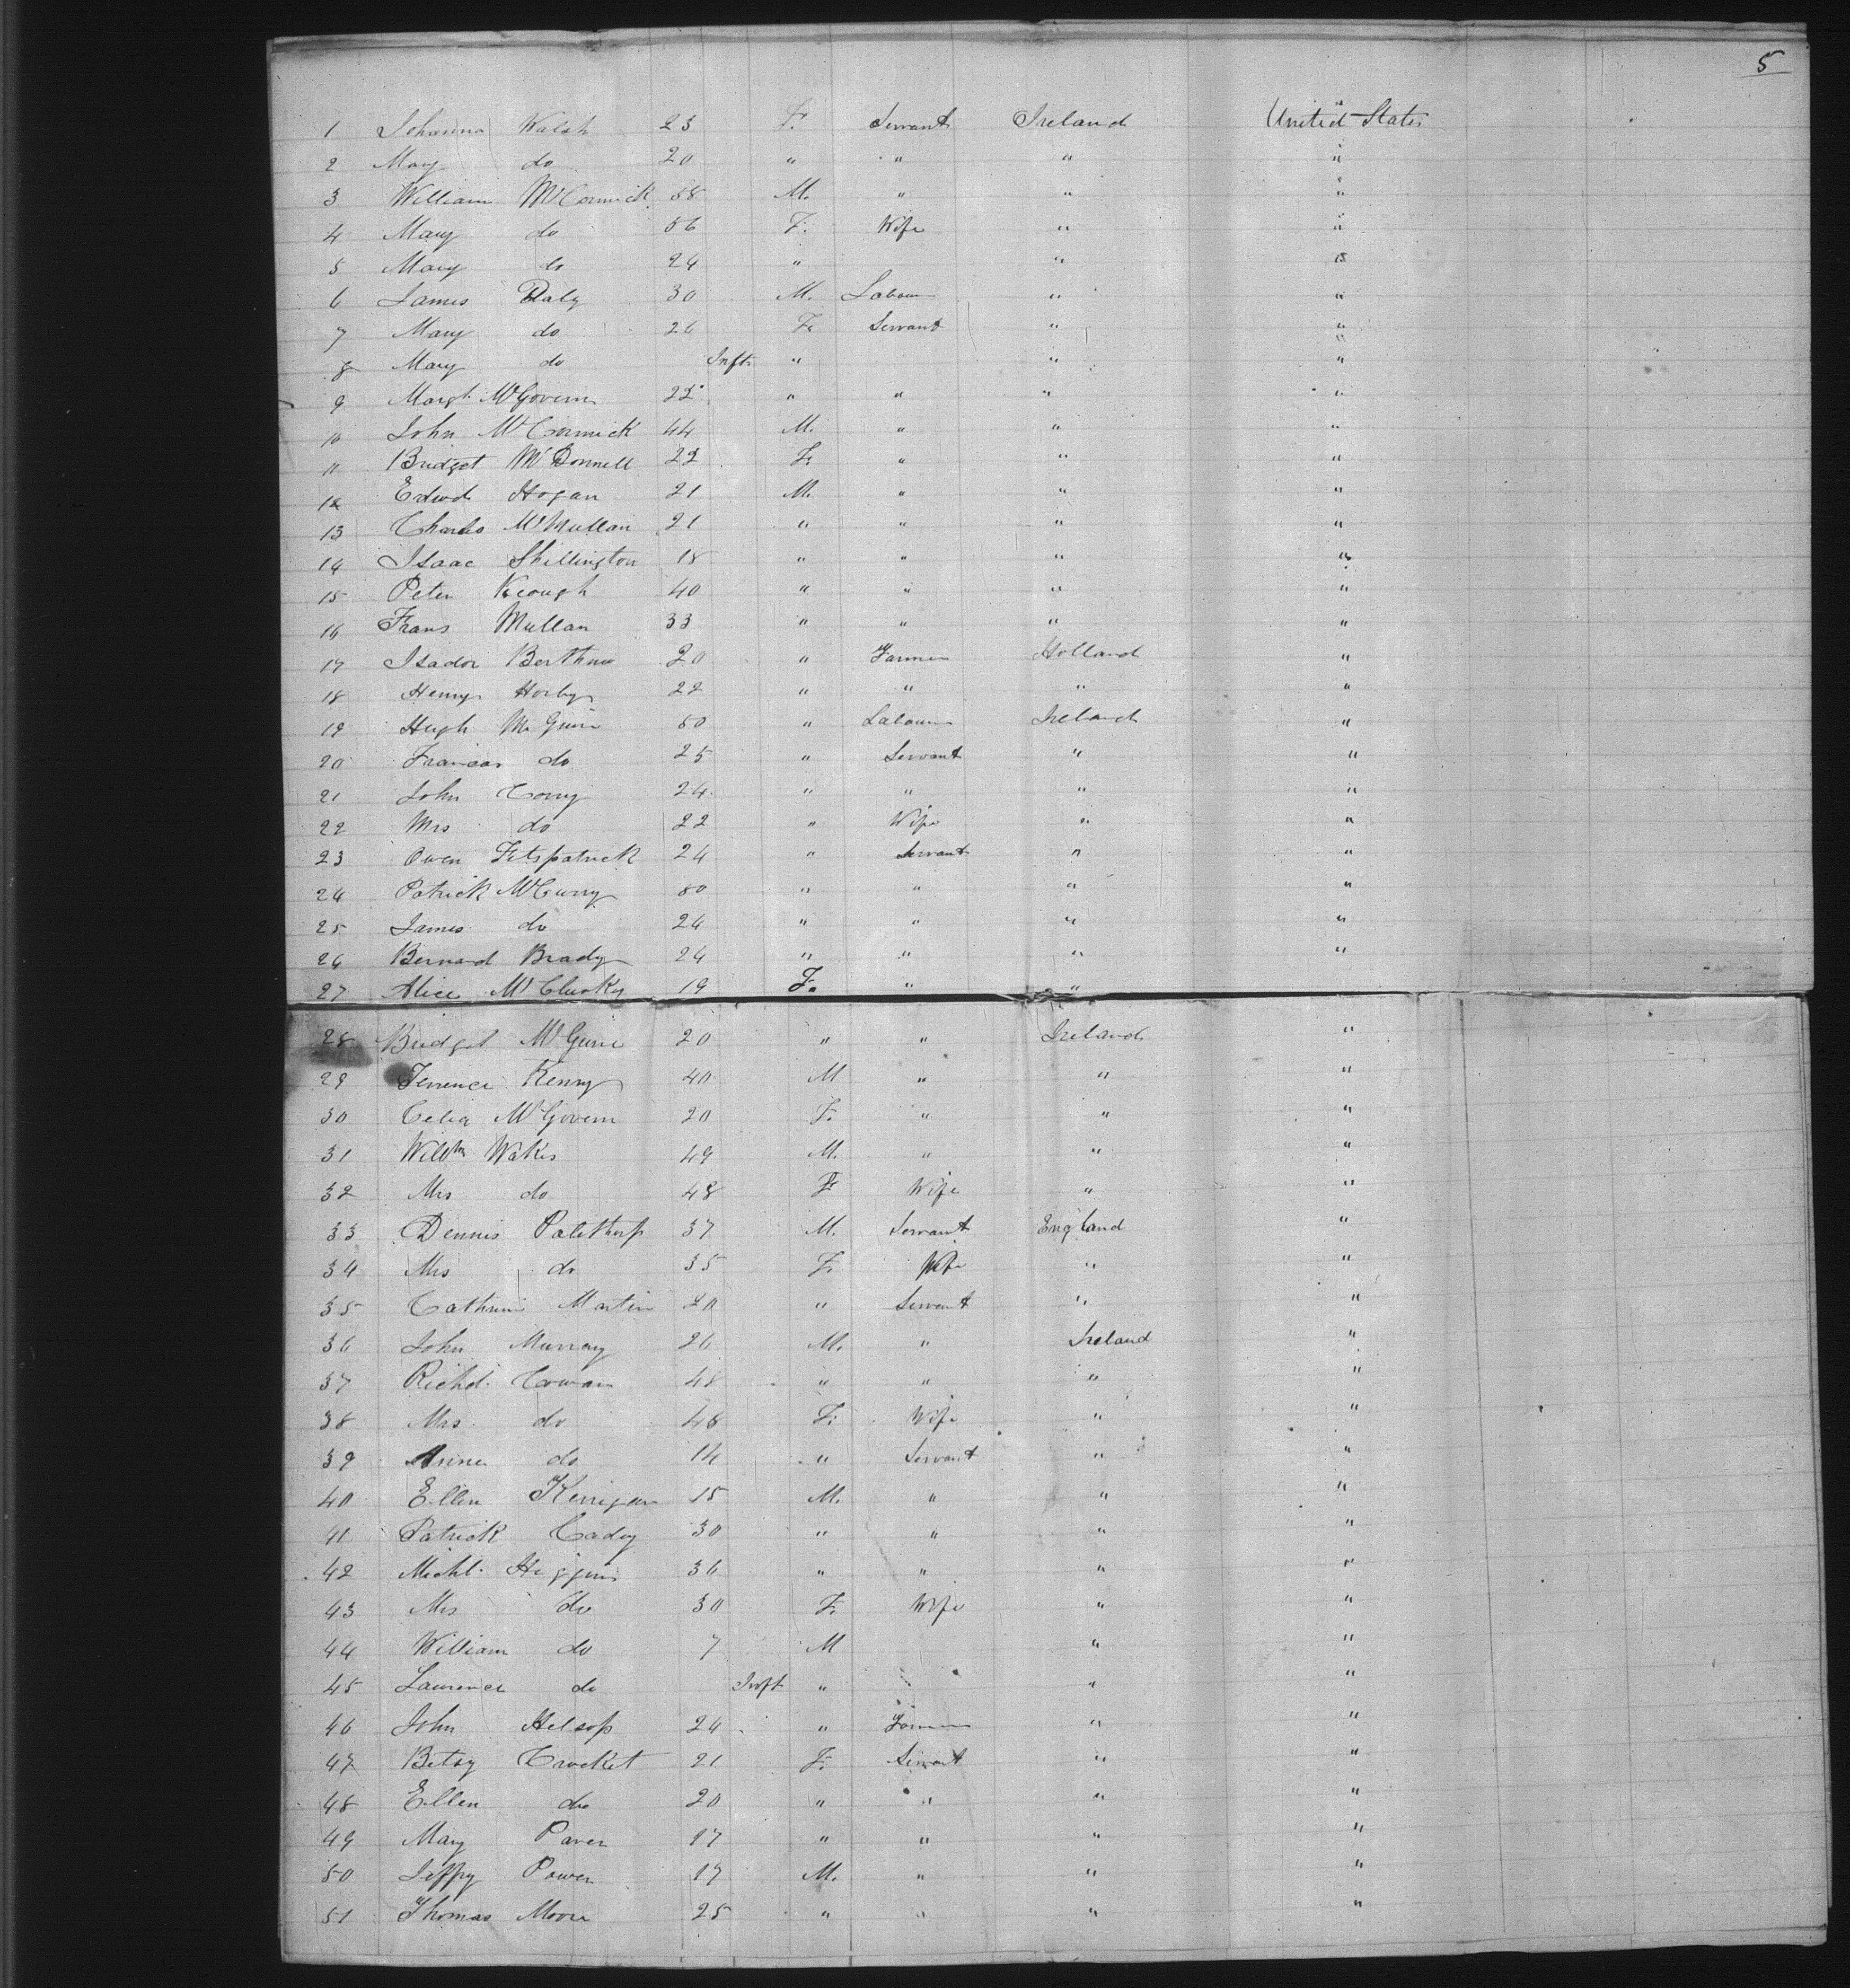 5
1 Johanna Walsh 23 F. Servant Ireland United States
2 Mary do 20 " " " "
3 William McCormick 58 M. " " "
4 Mary do 56 F. Wife " "
5 Mary do 24 " " "
6 James Daly 30 M. Labour " "
7 Mary do 26 F. Servant " "
8 Mary do Inft. " " "
9 Margt. McGovern 22 " " " "
10 John McCormick 44 M. " " "
11 Bridget McDonnell 22 F. " " "
12 Edwd. Hogan 21 M. " " "
13 Charles McMullan 21 " " " "
14 Isaac Shillington 18 " " " "
15 Peter Keough 40 " " " "
16 Frans Mullan 33 " " " "
17 Isador 20 " Farmer Holland "
18 Henry Horby 22 " " " "
19 Hugh McGuire 50 " Labour Ireland "
20 Francis do 25 " Servant " "
21 John Corry 24 " " " "
22 Mrs do 22 " Wife " "
23 Owen Fitspatrick 24 " Servant " "
24 Patrick McCurry 50 " " " "
25 James do 24 " " " "
26 Bernard Brady 24 " " " "
27 Alice McClusky 19 F. " "
28 Bridget McGuire 20 " " Ireland "
29 Terrence Kenny 40 M " " "
30 Celia McGovern 20 F. " " "
31 Willm Wakes 49 M. " " "
32 Mrs do 48 F Wife " "
33 Dennis Palethorp 37 M. Servant England "
34 Mrs do 35 F. Wife " "
35 Cathrine Martin 20 " Servant " "
36 John Murray 26 M. " Ireland "
37 Richd. Cowan 48 " " " "
38 Mrs do 48 F. Wife " "
39 Anne do 14 " Servant " "
40 Ellen Kerrigan 15 M. " " "
41 Patrick Cady 30 " " " "
42 Michl. Higgins 36 " " " "
43 Mrs do 30 F. Wife " "
44 William do 7 M " "
45 Lawrence do Inft " " "
46 John Helsop 24 " Farmer " "
47 Betsy Crocket 21 F. Servant " "
48 Ellen do 20 " " " "
49 Mary Paver 17 " " " "
50 Jeffry Power 17 M. " " "
51 Thomas Moore 25 " " " "